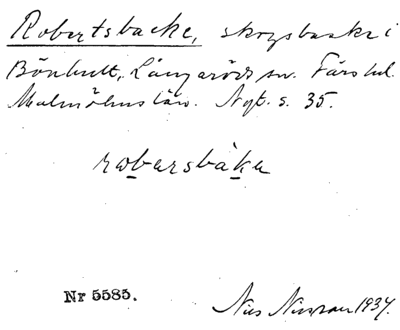 Robertsbacke, skogsbacke i
Bönhult, Långaröds sn. Färs hd.
Malmöhus län. Nyt. s. 35.
robersbáka
Nr 5585.
Nils Nilsson 1937.